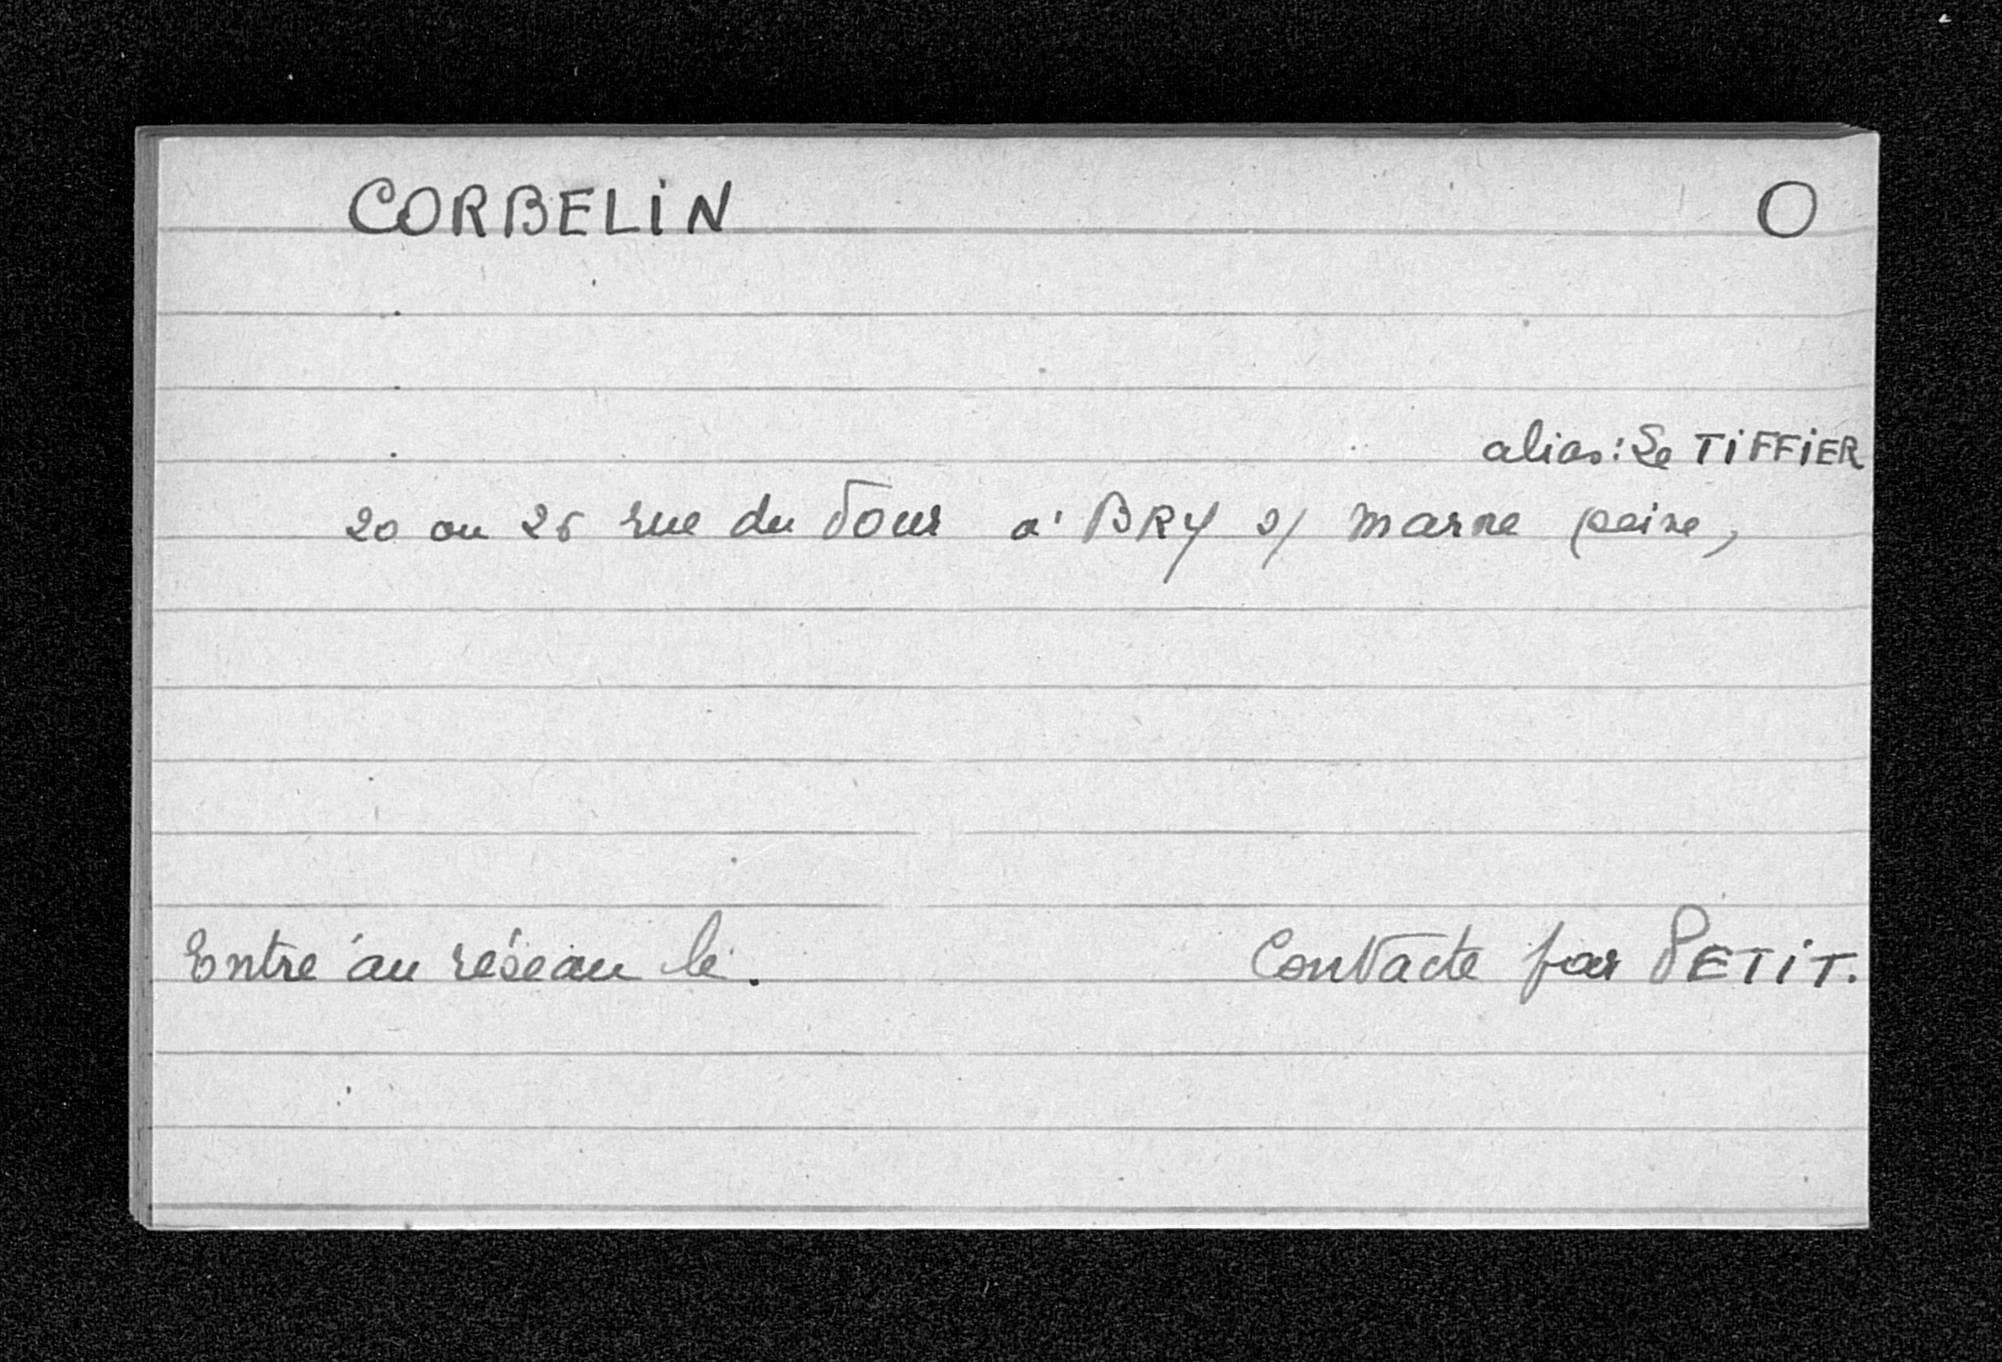 CORBELIN O
alias: Le TIFFIER
20 ou 26 rue du Four à BRY s/ Marne (Seine)
Entre au réseau le.
Contacte par PETIT.